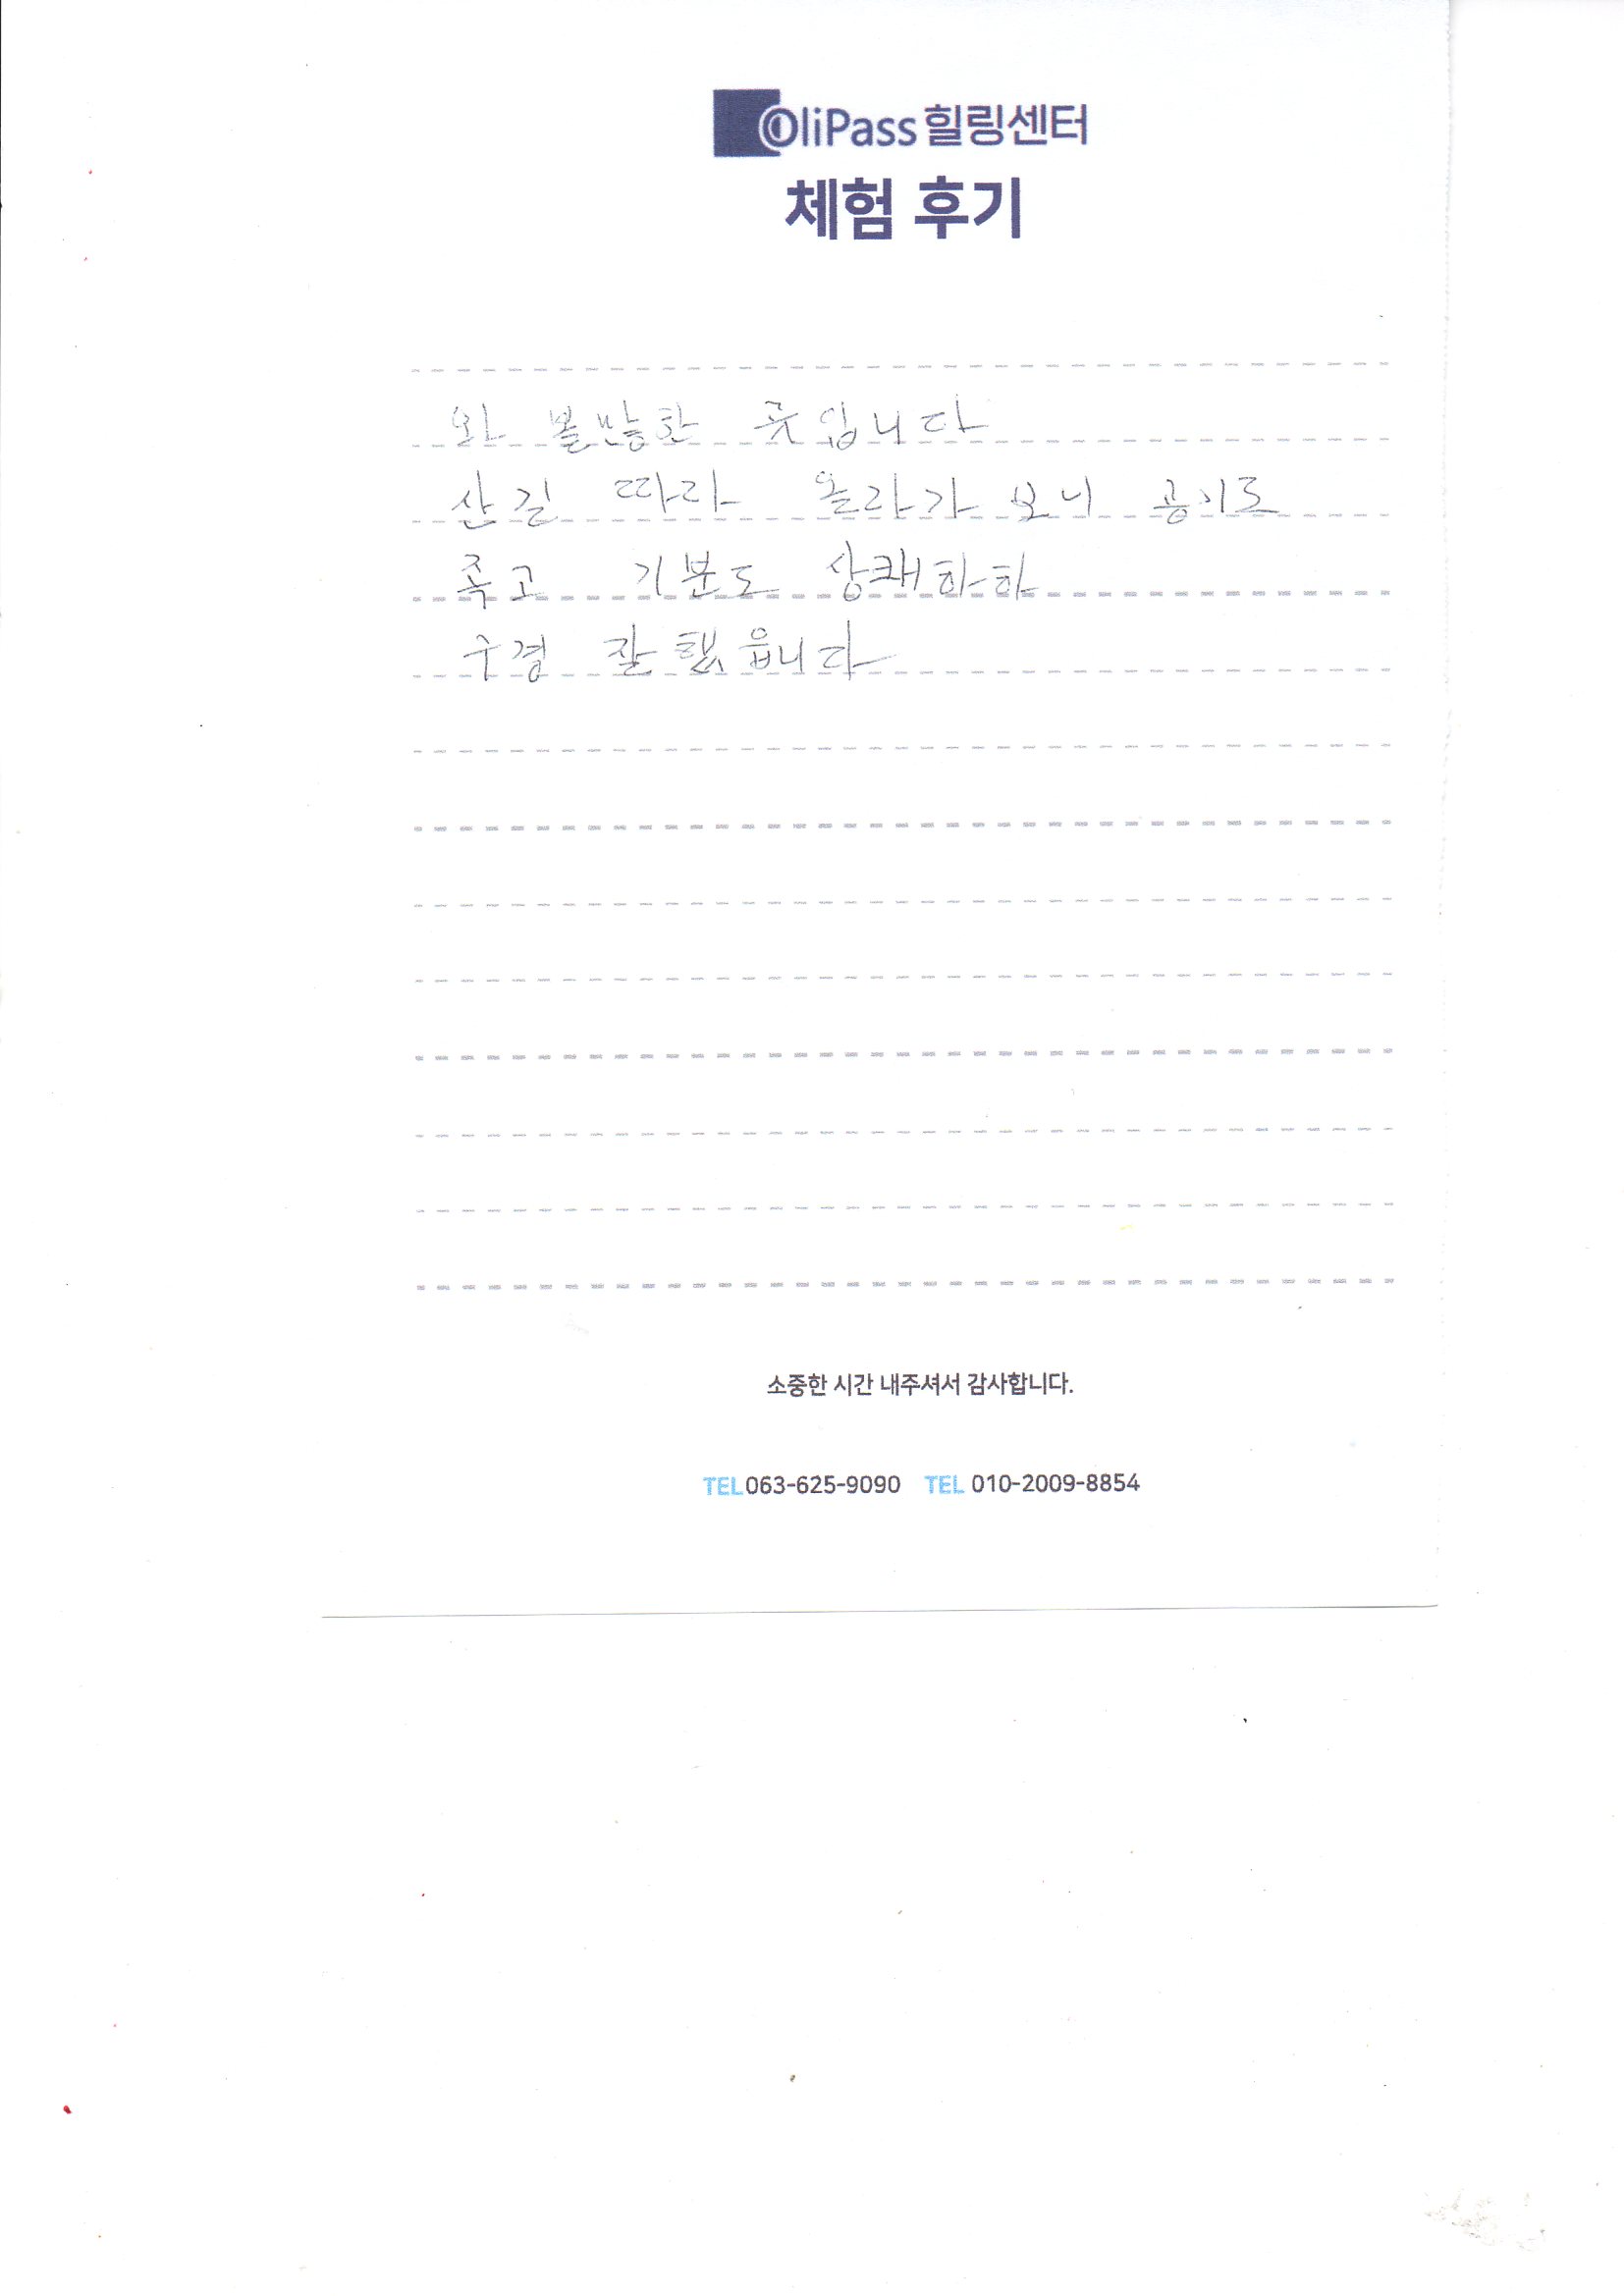 OliPass 힐링센터
체험 후기
와 볼만한 곳입니다
산길 따라 올라가 보니 공기도
좋고 기분도 상쾌하하
구경 잘했읍니다
소중한 시간 내주셔서 감사합니다.
TEL 063-625-9090 TEL 010-2009-8854